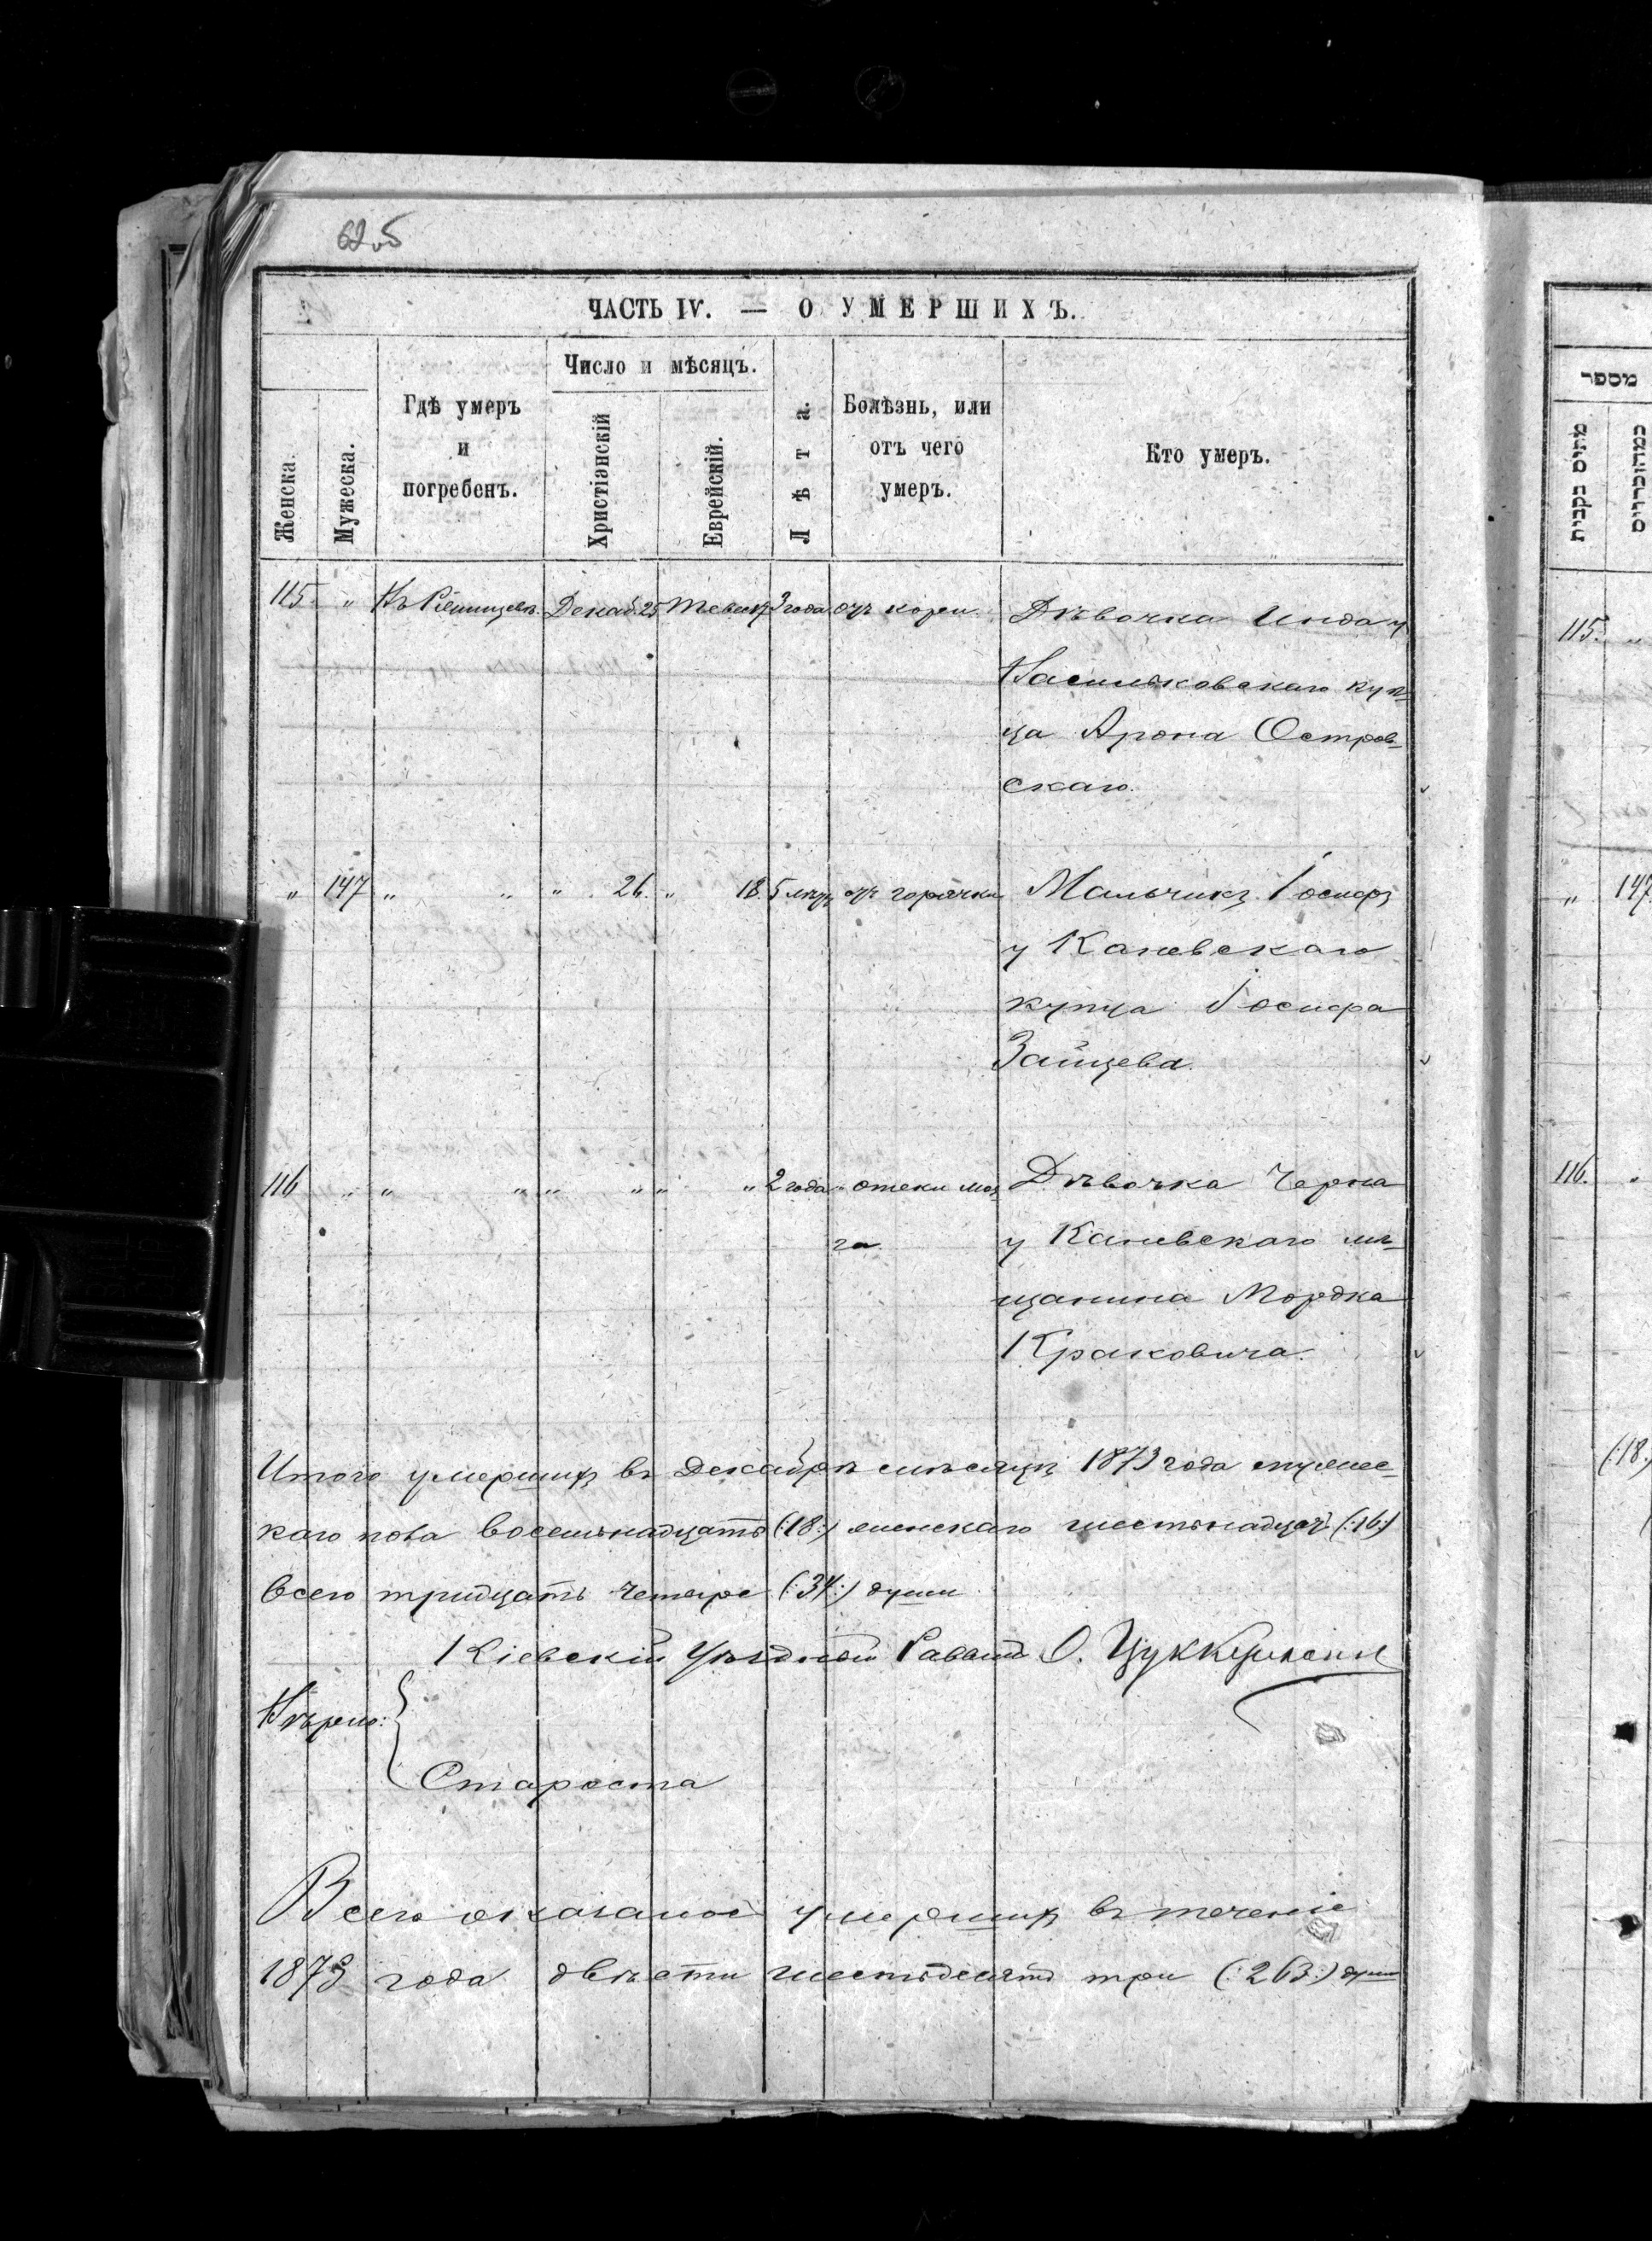 62об
ЧАСТЬ IV. — О УМЕРШИХЪ.
Женска.
Мужеска.
Гдѣ умеръ
и
погребенъ.
Число и мѣсяцъ.
Христіанскій
Еврейскій.
Лѣта.
Болѣзнь, или
отъ чего
умеръ.
Кто умеръ.
115. „ Декаб. 25 Тевеса 17 3 года отъ кори. Дѣвочка Инда у
Васильковскаго куп-
ца Арона Остров-
скаго.
„ 147 „ „ „ 26. „ 18. 5 лѣтъ отъ горячки Мальчикъ Іосифъ
у Каневскаго
купца Іосифа
Зайцева.
116 „ „ „ „ „ „ „ 2 года отеки моз Дѣвочка Черна
га. у Каневскаго мѣ-
щанина Мордка
Краковича.
Итого умершихъ въ Декабрѣ мѣсяцѣ 1873 года мужес-
каго пола восемьнадцать (:18:) женскаго шестьнадцать (:16:)
всего тридцать четыре (:34:) души
Кіевскій Уѣздный Раввинъ О. Цуккерманъ
Вѣрно:
Староста
Всего оказалось умершихъ въ теченіе
1873 года двѣсти шестьдесятъ три (:263:) душъ
מספר
מתים נקבות
115. „
„ 147.
116. „
(:18:)